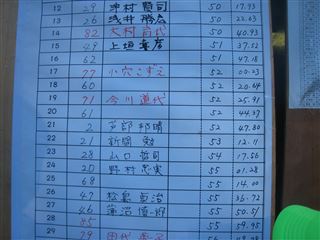 12 29 津村 賢司 50 17.93
13 26 浅井 勝 50 22.63
14 82 大村 百代 50 40.93
15 49 上垣 51 37.52
16 62 51 47.18
17 77 小穴 こずえ 52 00.23
18 60 52 20.64
19 71 今川 道代 52 25.91
20 61 52 44.37
21 2 芦郎 邦晴 52 47.80
22 21 新開 勉 53 12.11
23 28 山口 哲司 54 17.56
24 20 野村 忠実 55 01.28
25 68 55 14.00
26 47 松島 貞治 55 36.72
27 46 蒲沼 55 50.51
28 85 55 59.95
29 79 田代